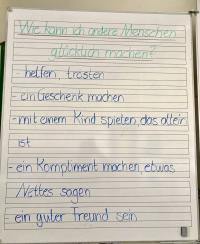 Wie kann ich andere Menschen
glücklich machen?
- helfen, trösten
- ein Geschenk machen
- mit einem Kind spielen, das allein
ist
- ein Kompliment machen, etwas
Nettes sagen
- ein guter Freund sein